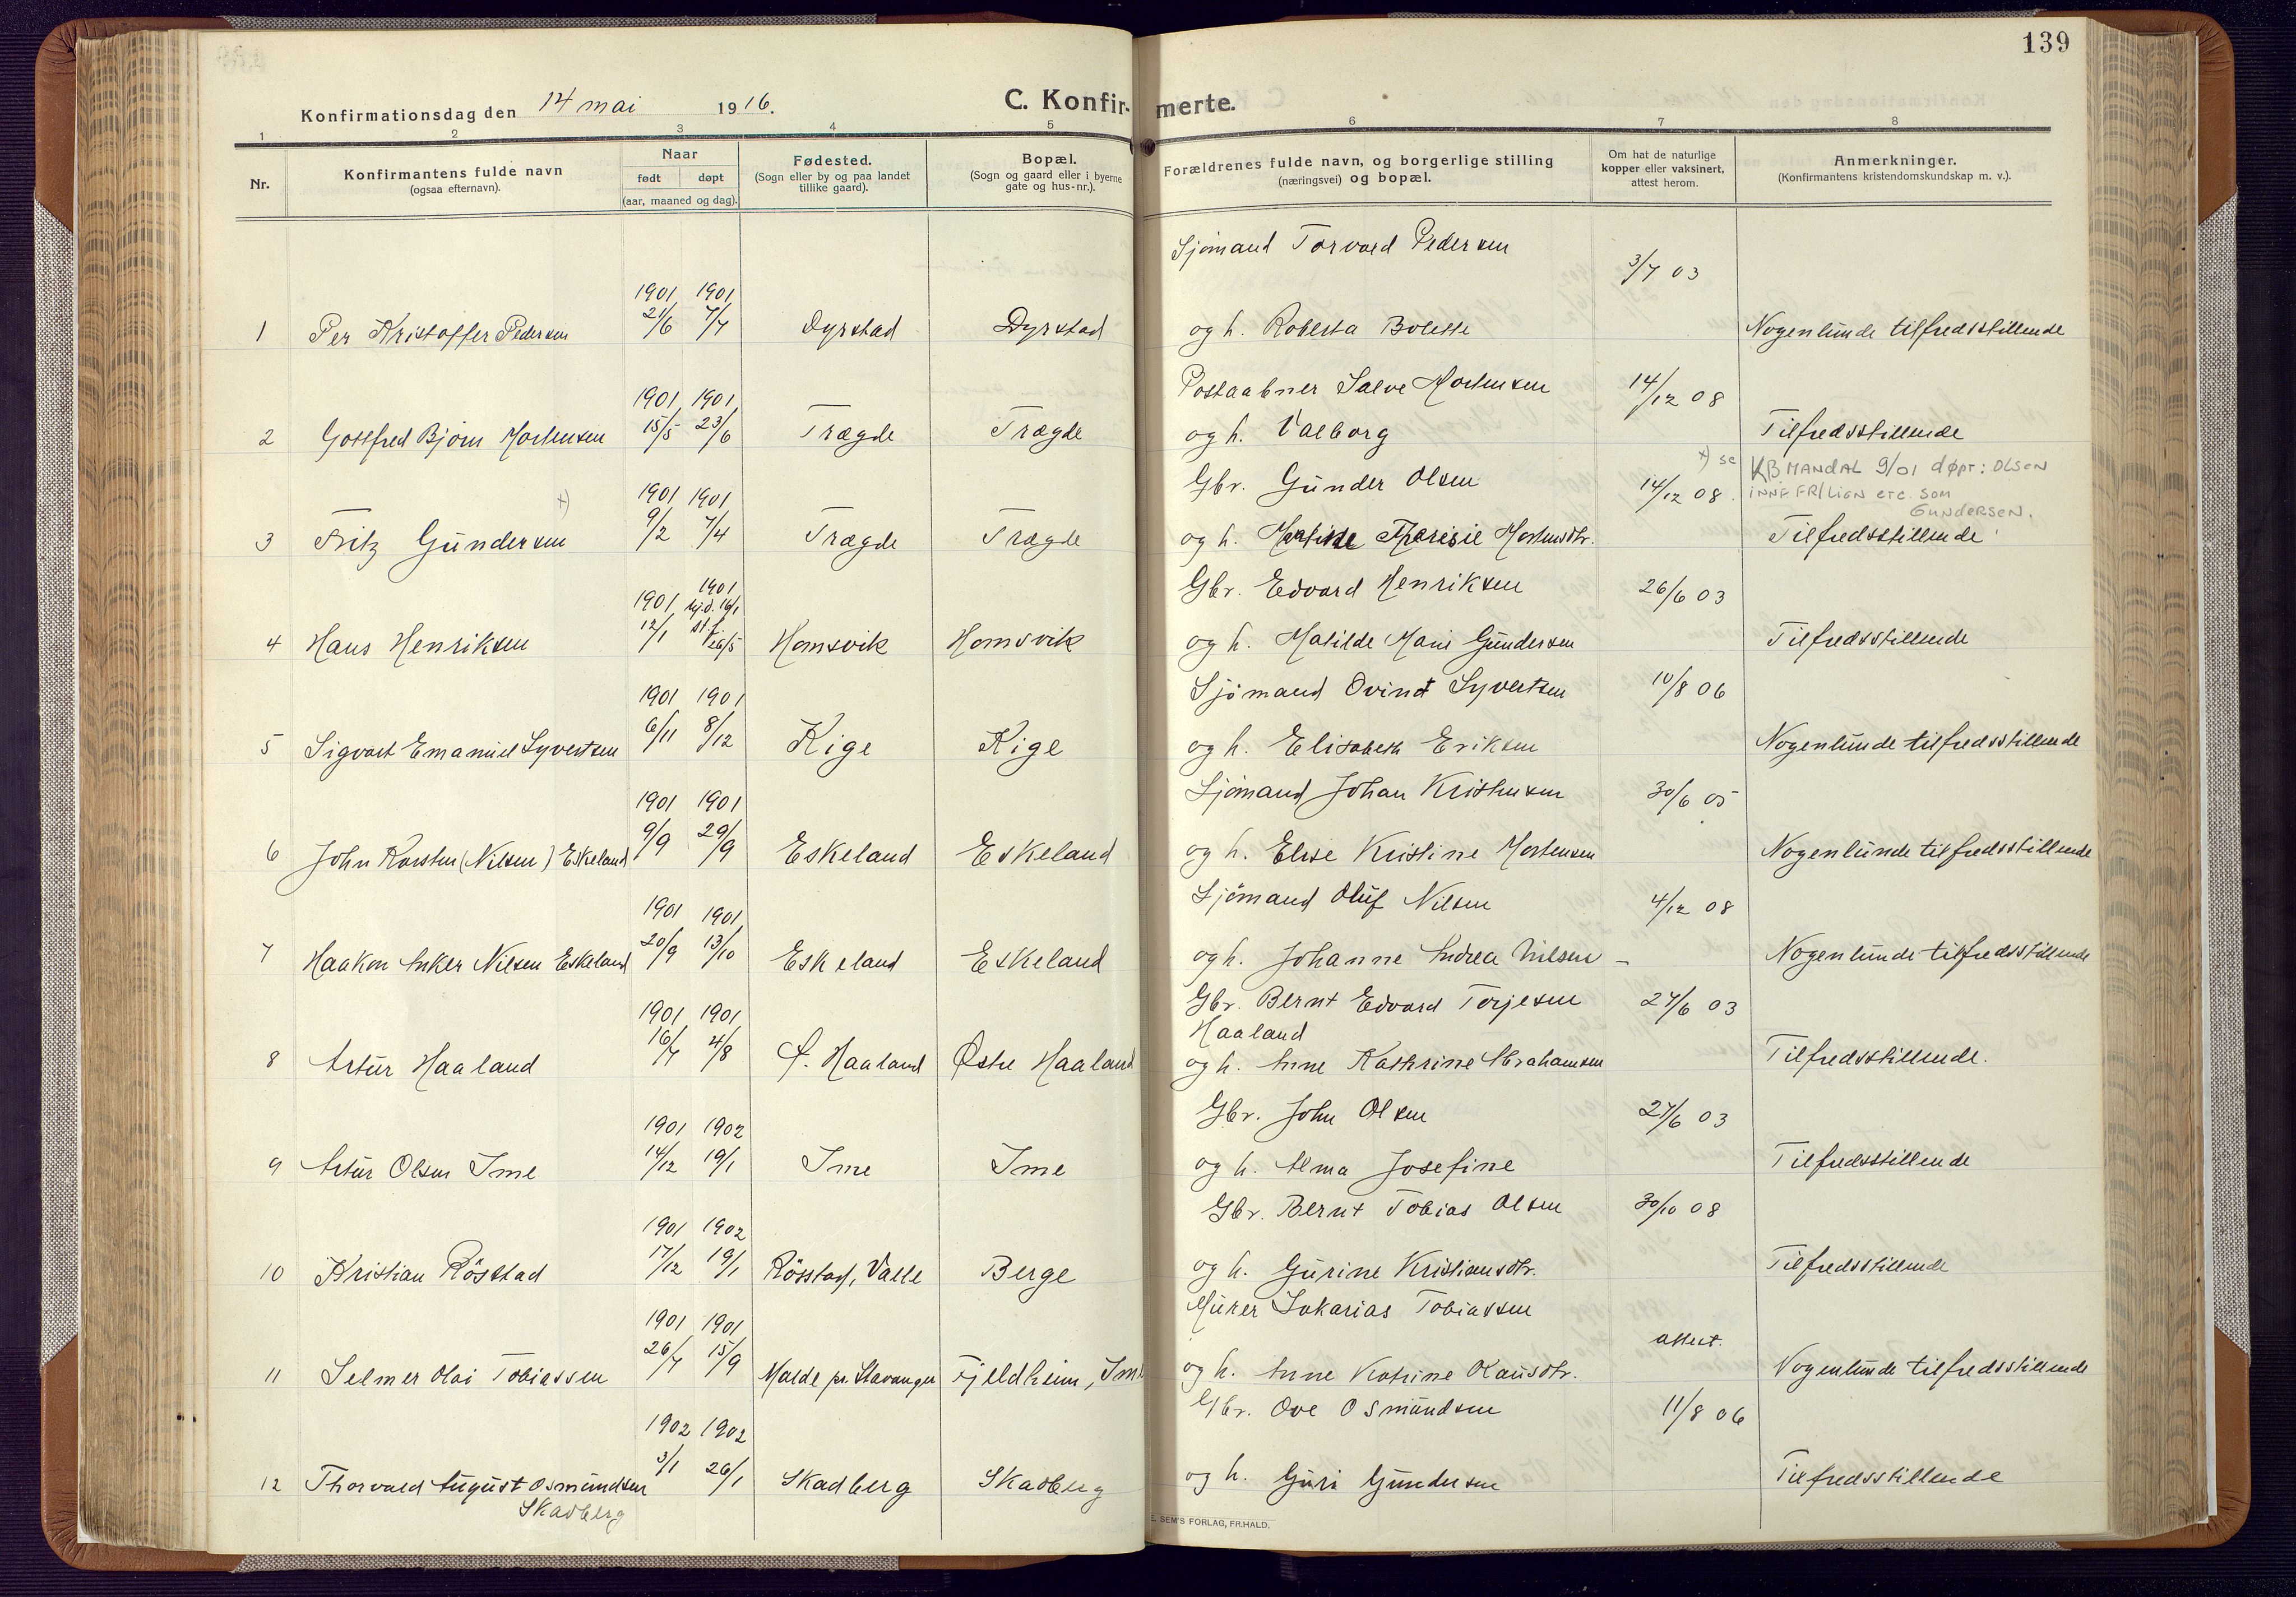 139
Konfirmationsdag den 14 mai 1916. C. Konfir- merte.
1 2 3 4 5 6 7 8
Nr.
Konfirmantens fulde navn
(ogsaa efternavn).
Naar
født døpt
(aar, maaned og dag).
Fødested.
(Sogn eller by og paa landet
tillike gaard).
Bopæl.
(Sogn og gaard eller i byerne
gate og hus-nr.).
Forældrenes fulde navn, og borgerlige stilling
(næringsvei) og bopæl.
Om hat de naturlige
kopper eller vaksinert,
attest herom.
Anmerkninger.
(Konfirmantens kristendomskundskap m. v.).
Sjömand Torvald Pedersen
3/7 03
1901 1901
1 Per Kristoffer Pedersen 21/6 7/7 Dyrstad Dyrstad og h. Roberta Bolette Nogenlunde tilfredsstillende
Postaabner Salve Mortensen 14/12 08
1901 1901
2 Gottfred Bjørn Mortensen 15/5 23/6 Trægde Trægde og h. Valborg Tilfredsstillende
x) se KB MANDAL 9/01 døpt: OLSEN
Gbr. Gunder Olsen 14/12 08. INNF FR/LIGN etc. SOM
GUNDERSEN.
1901 1901
3 Fritz Gundersen x) 9/2 7/4 Trægde Trægde og h. Martine Theresie Mortensdtr. Tilfredsstillende
Gbr. Edvard Henriksen 26/6 03
1901 1901
hj.d. 16/1
4 Hans Henriksen 12/1 st.f. 26/5 Homsvik Homsvik og h. Matilde Marie Gundersen Tilfredsstillende
Sjömand Ovind Syvertsen 10/8 06
1901 1901
5 Sigvart Emanuel Syvertsen 6/11 8/12 Kige Kige og h. Elisabeth Eriksen Nogenlunde tilfredsstillende
Sjömand Johan Kristensen 30/6 05
1901 1901
6 John Karsten (Nilsen) Eskeland 9/9 29/9 Eskeland Eskeland og h. Elise Kristine Mortensen Nogenlunde tilfredsstillende
Sjömand Oluf Nilsen 4/12 08
1901 1901
7 Haakon Anker Nilsen Eskeland 20/9 13/10 Eskeland Eskeland og h. Johanne Andrea Nilsen – Nogenlunde tilfredsstillende
Gbr. Bernt Edvard Torjesen 27/6 03
Haaland
1901 1901
8 Artur Haaland 16/7 4/8 Ø. Haaland Østre Haaland og h. Anne Kathrine Abrahamsen Tilfredsstillende.
Gbr. John Olsen 27/6 03
1901 1902
9 Artur Olsen Ime 14/12 19/1 Ime Ime og h. Alma Josefine Tilfredsstillende
Gbr. Bernt Tobias Olsen 30/10 08
1901 1902
10 Kristian Rösstad 17/12 19/1 Rösstad, Valle Berge og h. Gurine Kristiansdtr. Tilfredsstillende
Murer Sakarias Tobiassen
attest.
1901 1901
11 Selmer Olai Tobiassen 26/7 15/9 Malde pr. Stavanger Fjeldheim, Ime og h. Anne Katrine Olausdtr. Nogenlunde tilfredsstillende
Gbr. Ove Osmundsen 11/8 06
1902 1902
12 Thorvald August Osmundsen 3/1 26/1 Skadberg Skadberg og h. Guri Gundersen Tilfredsstillende
Skadberg
E. SEM'S FORLAG, FR.HALD.